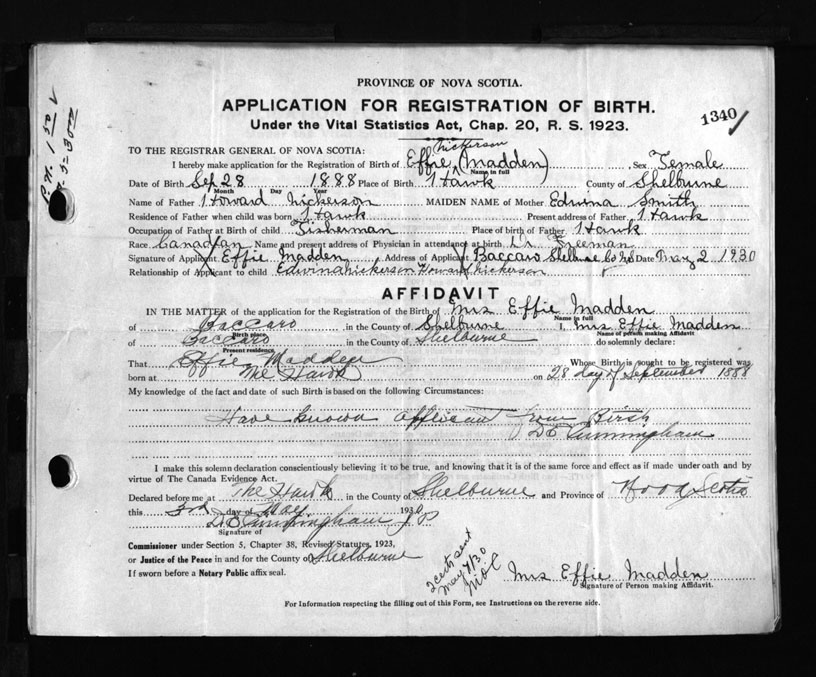 PROVINCE OF NOVA SCOTIA.
APPLICATION FOR REGISTRATION OF BIRTH.
1340
Under the Vital Statistics Act, Chap. 20, R. S. 1923.
TO THE REGISTRAR GENERAL OF NOVA SCOTIA:
Nickerson
I hereby make application for the Registration of Birth of Effie (Madden) Sex Female
Name in full
Date of Birth Sep 28 1888 Place of Birth Hawk County of Shelburne
Month Day Year
Name of Father Howard Nickerson MAIDEN NAME of Mother Edwina Smith
Residence of Father when child was born Hawk Present address of Father Hawk
Occupation of Father at Birth of child Fisherman Place of birth of Father Hawk
Race Canadian Name and present address of Physician in attendance at birth Dr Freeman
Signature of Applicant Effie Madden Address of Applicant Baccaro Shelburne Co NS Date May 2 1930
Relationship of Applicant to child Edwina Nickerson Howard Nickerson
AFFIDAVIT
IN THE MATTER of the application for the Registration of the Birth of Mrs Effie Madden
Name in full
of Baccaro in the County of Shelburne I, Mrs Effie Madden
Birth place Name of person making Affidavit
of Baccaro in the County of Shelburne do solemnly declare:
Present residence
That Effie Madden Whose Birth is sought to be registered was
born at The Hawk on 28 day of September 1888
My knowledge of the fact and date of such Birth is based on the following Circumstances:
Have known applicant from Birth
D E Cunningham
I make this solemn declaration conscientiously believing it to be true, and knowing that it is of the same force and effect as if made under oath and by
virtue of The Canada Evidence Act.
Declared before me at The Hawk in the County of Shelburne and Province of Nova Scotia
this 3rd day of May 1930
D E Cunningham J P
Signature of
Commissioner under Section 5, Chapter 38, Revised Statutes, 1923,
or Justice of the Peace in and for the County of Shelburne
If sworn before a Notary Public affix seal.
2 certs sent
May 7/30
Mrs Effie Madden
Signature of Person making Affidavit.
For Information respecting the filling out of this Form, see Instructions on the reverse side.